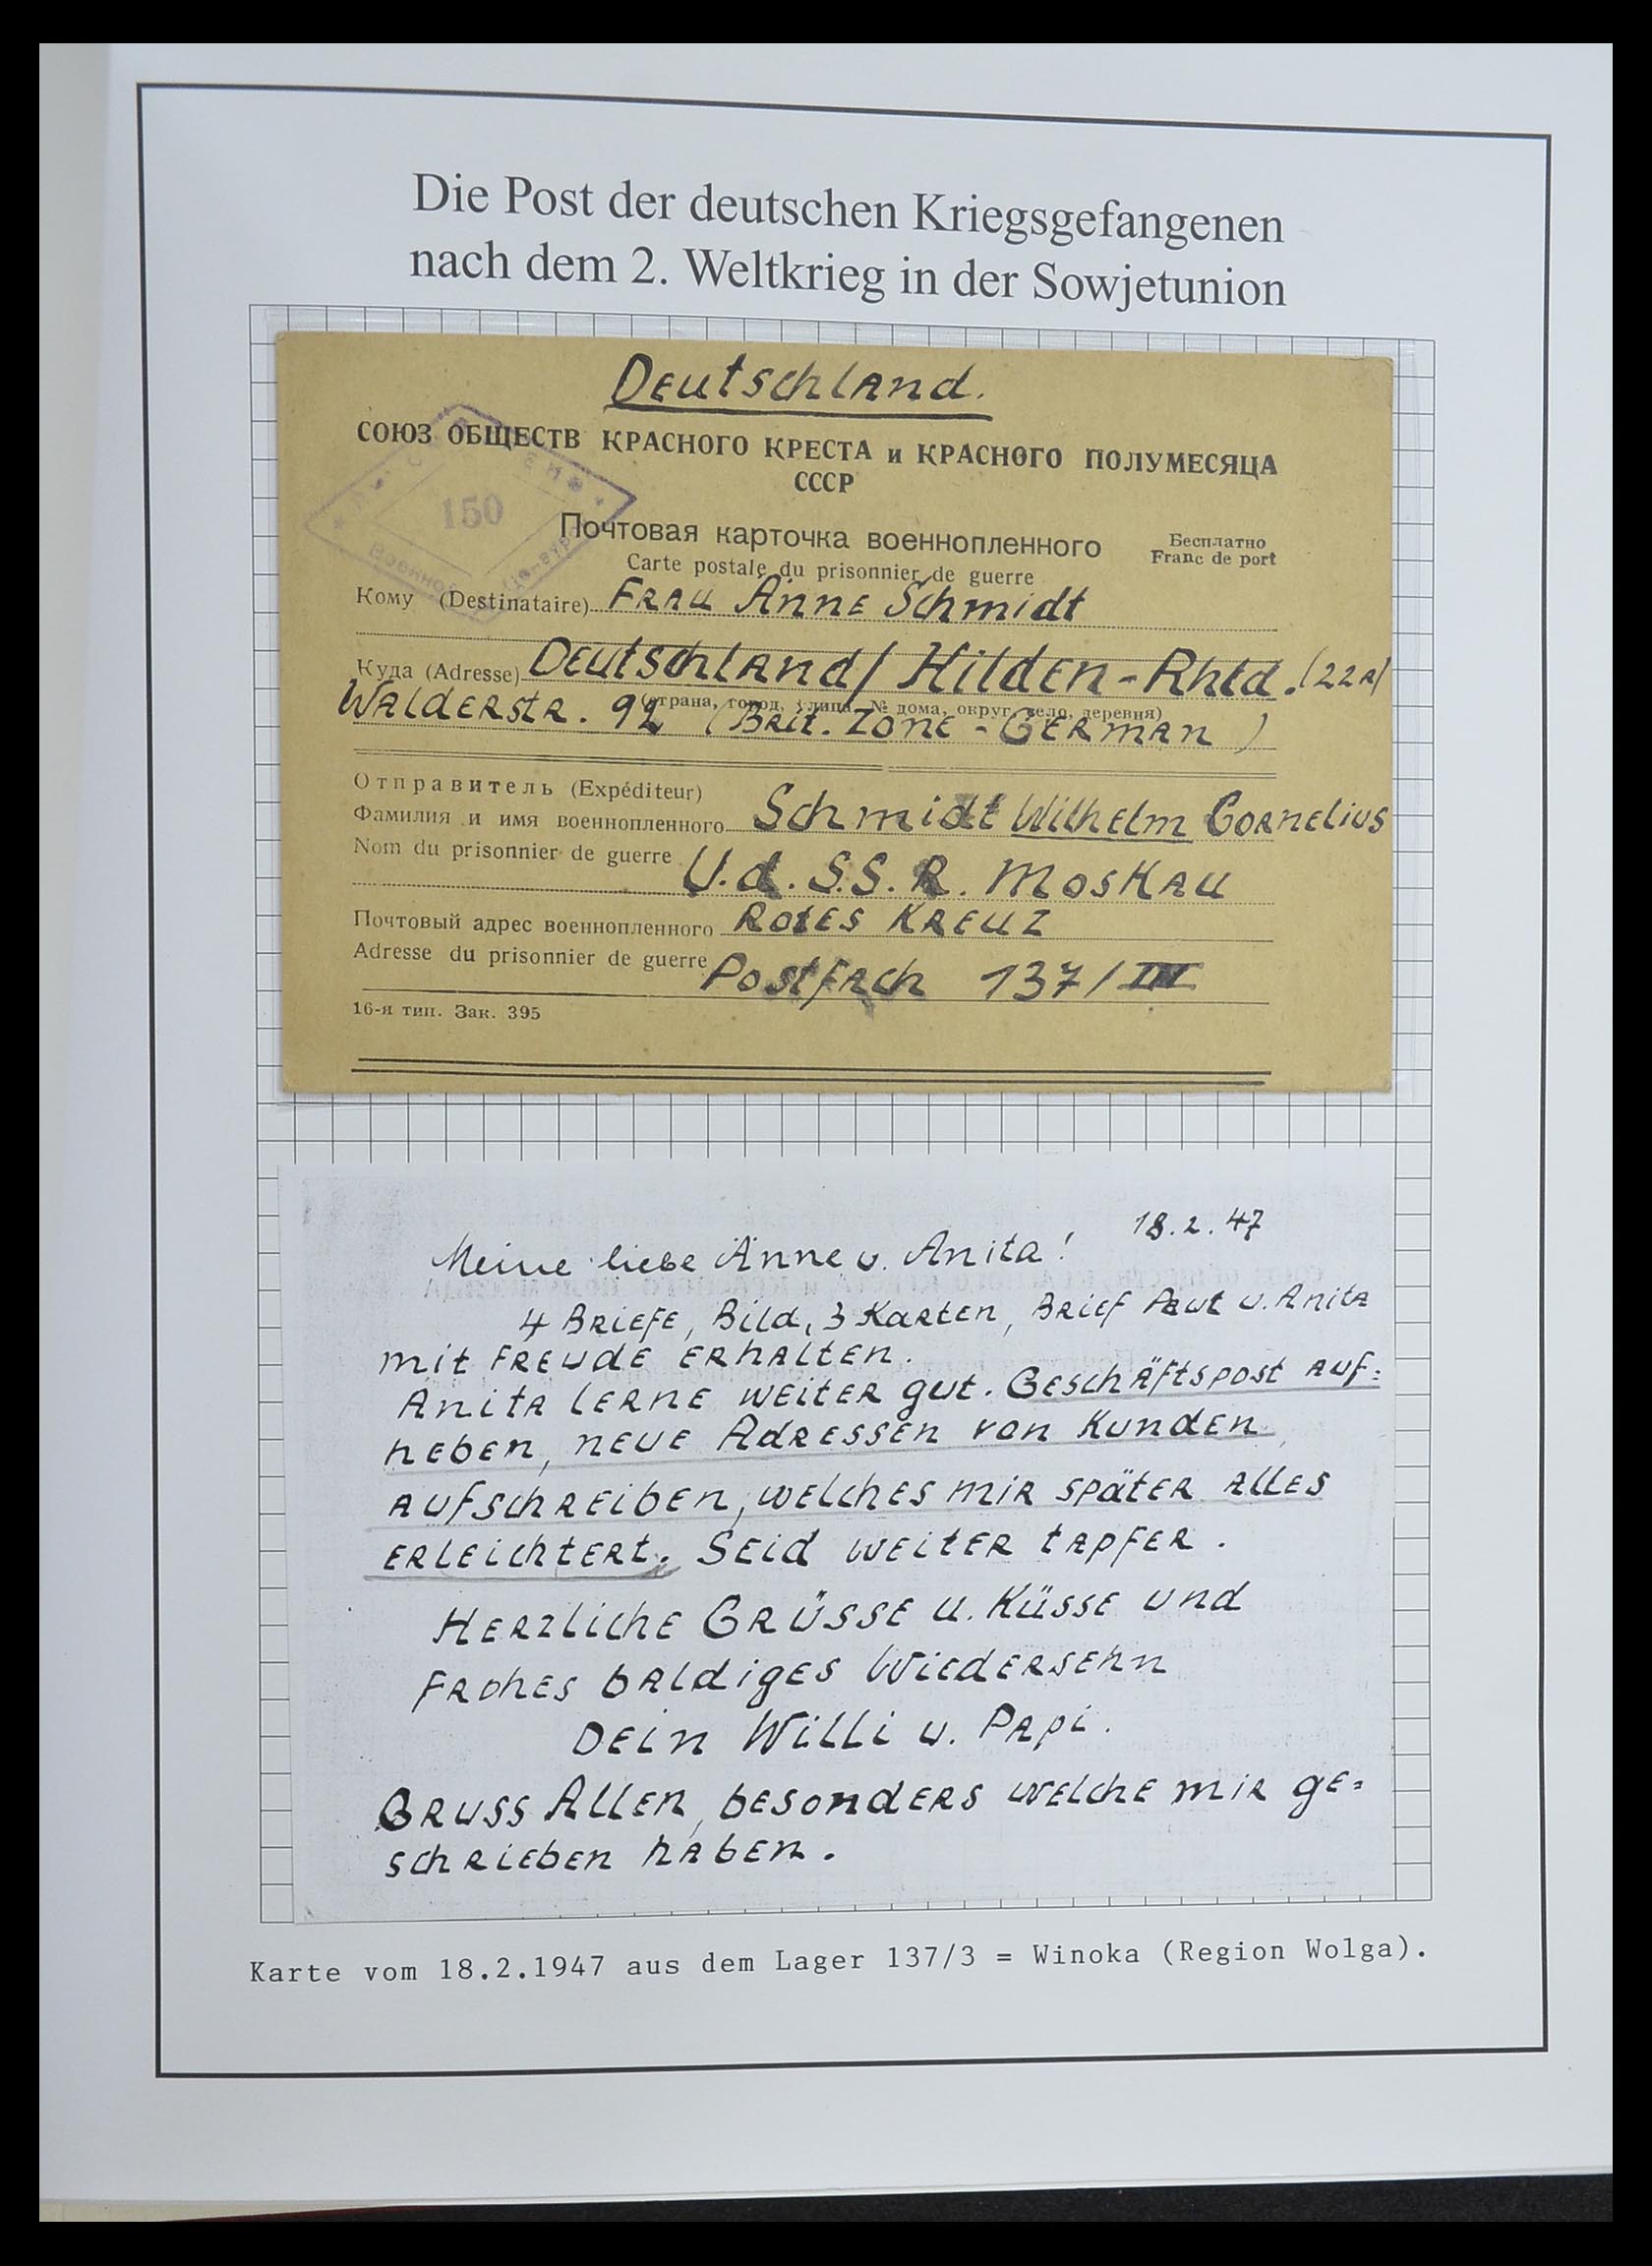 Die Post der deutschen Kriegsgefangenen
nach dem 2. Weltkrieg in der Sowjetunion
Deutschland.
СОЮЗ ОБЩЕСТВ КРАСНОГО КРЕСТА и КРАСНОГО ПОЛУМЕСЯЦА
СССР
150
Почтовая карточка военнопленного
Бесплатно
Carte postale du prisonnier de guerre
Franc de port
Кому (Destinataire) Frau Änne Schmidt
Куда (Adresse) Deutschland/ Hilden-Rhld. (22a)
(страна, город, улица, № дома, округ, село, деревня)
Walderstr. 92 (Brit. Zone - German)
Отправитель (Expéditeur)
Фамилия и имя военнопленного Schmidt Wilhelm Cornelius
Nom du prisonnier de guerre U.d.S.S.R. Moskau
Почтовый адрес военнопленного Rotes Kreuz
Adresse du prisonnier de guerre Postfach 137/III
16-я тип. Зак. 395
18.2.47
Meine liebe Änne u. Anita!
4 Briefe, Bild, 3 Karten, Brief Paul u. Anita
mit Freude erhalten.
Anita lerne weiter gut. Geschäftspost auf=
heben, neue Adressen von Kunden
aufschreiben, welches mir später alles
erleichtert. Seid weiter tapfer.
Herzliche Grüsse u. Küsse und
frohes baldiges Wiedersehn
Dein Willi u. Papi.
Gruss Allen, besonders welche mir ge=
schrieben haben.
Karte vom 18.2.1947 aus dem Lager 137/3 = Winoka (Region Wolga).